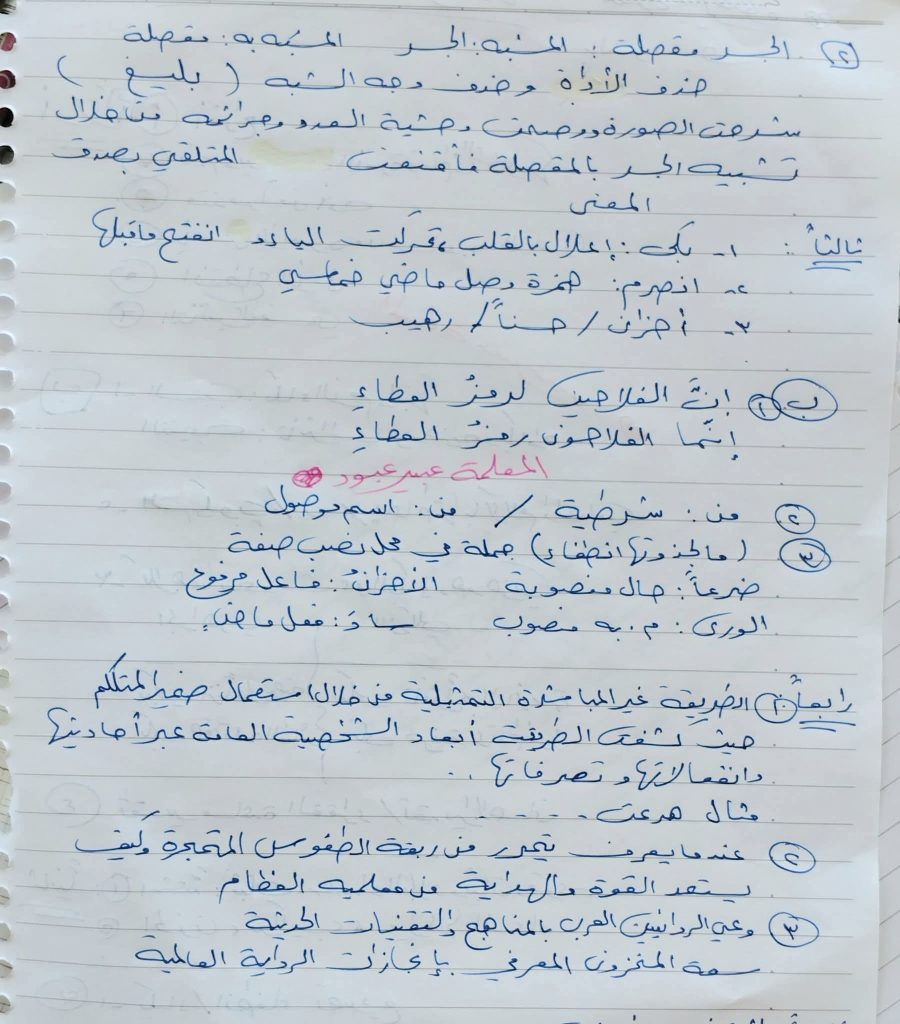 (٢) الجسر مقصلة : المشبه : الجسر المشبه به : مقصلة
حذف الأداة وحذف وجه الشبه ( بليغ )
شرحت الصورة ووضحت وحشية العدو وجرائمه من خلال
تشبيه الجسر بالمقصلة فأقنعت المتلقي بصدق
المعنى
ثالثاً : ١- بكى : إعلال بالقلب ، تحركت الياء و انفتح ماقبلها
٢- انصرم : همزة وصل ماضي خماسي
٣- أحزان / حسناً / رهيب
(ب) (١) إنَّ الفلاحين لرمزُ العطاءِ
إنّما الفلاحون رمزُ العطاءِ
المعلمة عبير عبود
(٢) من : شرطية / من : اسم موصول
(٣) ( مالجذوتها انطفاء ) جملة في محل نصب صفة
ضرعاً : حال منصوبة الأحزانُ : فاعل مرفوع
الورى : م . به منصوب سادَ : فعل ماضٍ
رابعاً (١) الطريقة غير المباشرة التمثيلية من خلال استعمال ضمير المتكلم
حيث كشفت الطريقة أبعاد الشخصية العامة عبر أحاديثها
وانفعالاتها وتصرفاتها ..
مثال هرعت . . . . .
(٢) عندما يعرف يتحرر من ربقة الطقوس المتحجرة وكيف
يستمد القوة والهداية من معلميه العظام
(٣) وعي الروائيين العرب بالمناهج والتقنيات الحديثة
سعة المخزون المعرفي بإنجازات الرواية العالمية